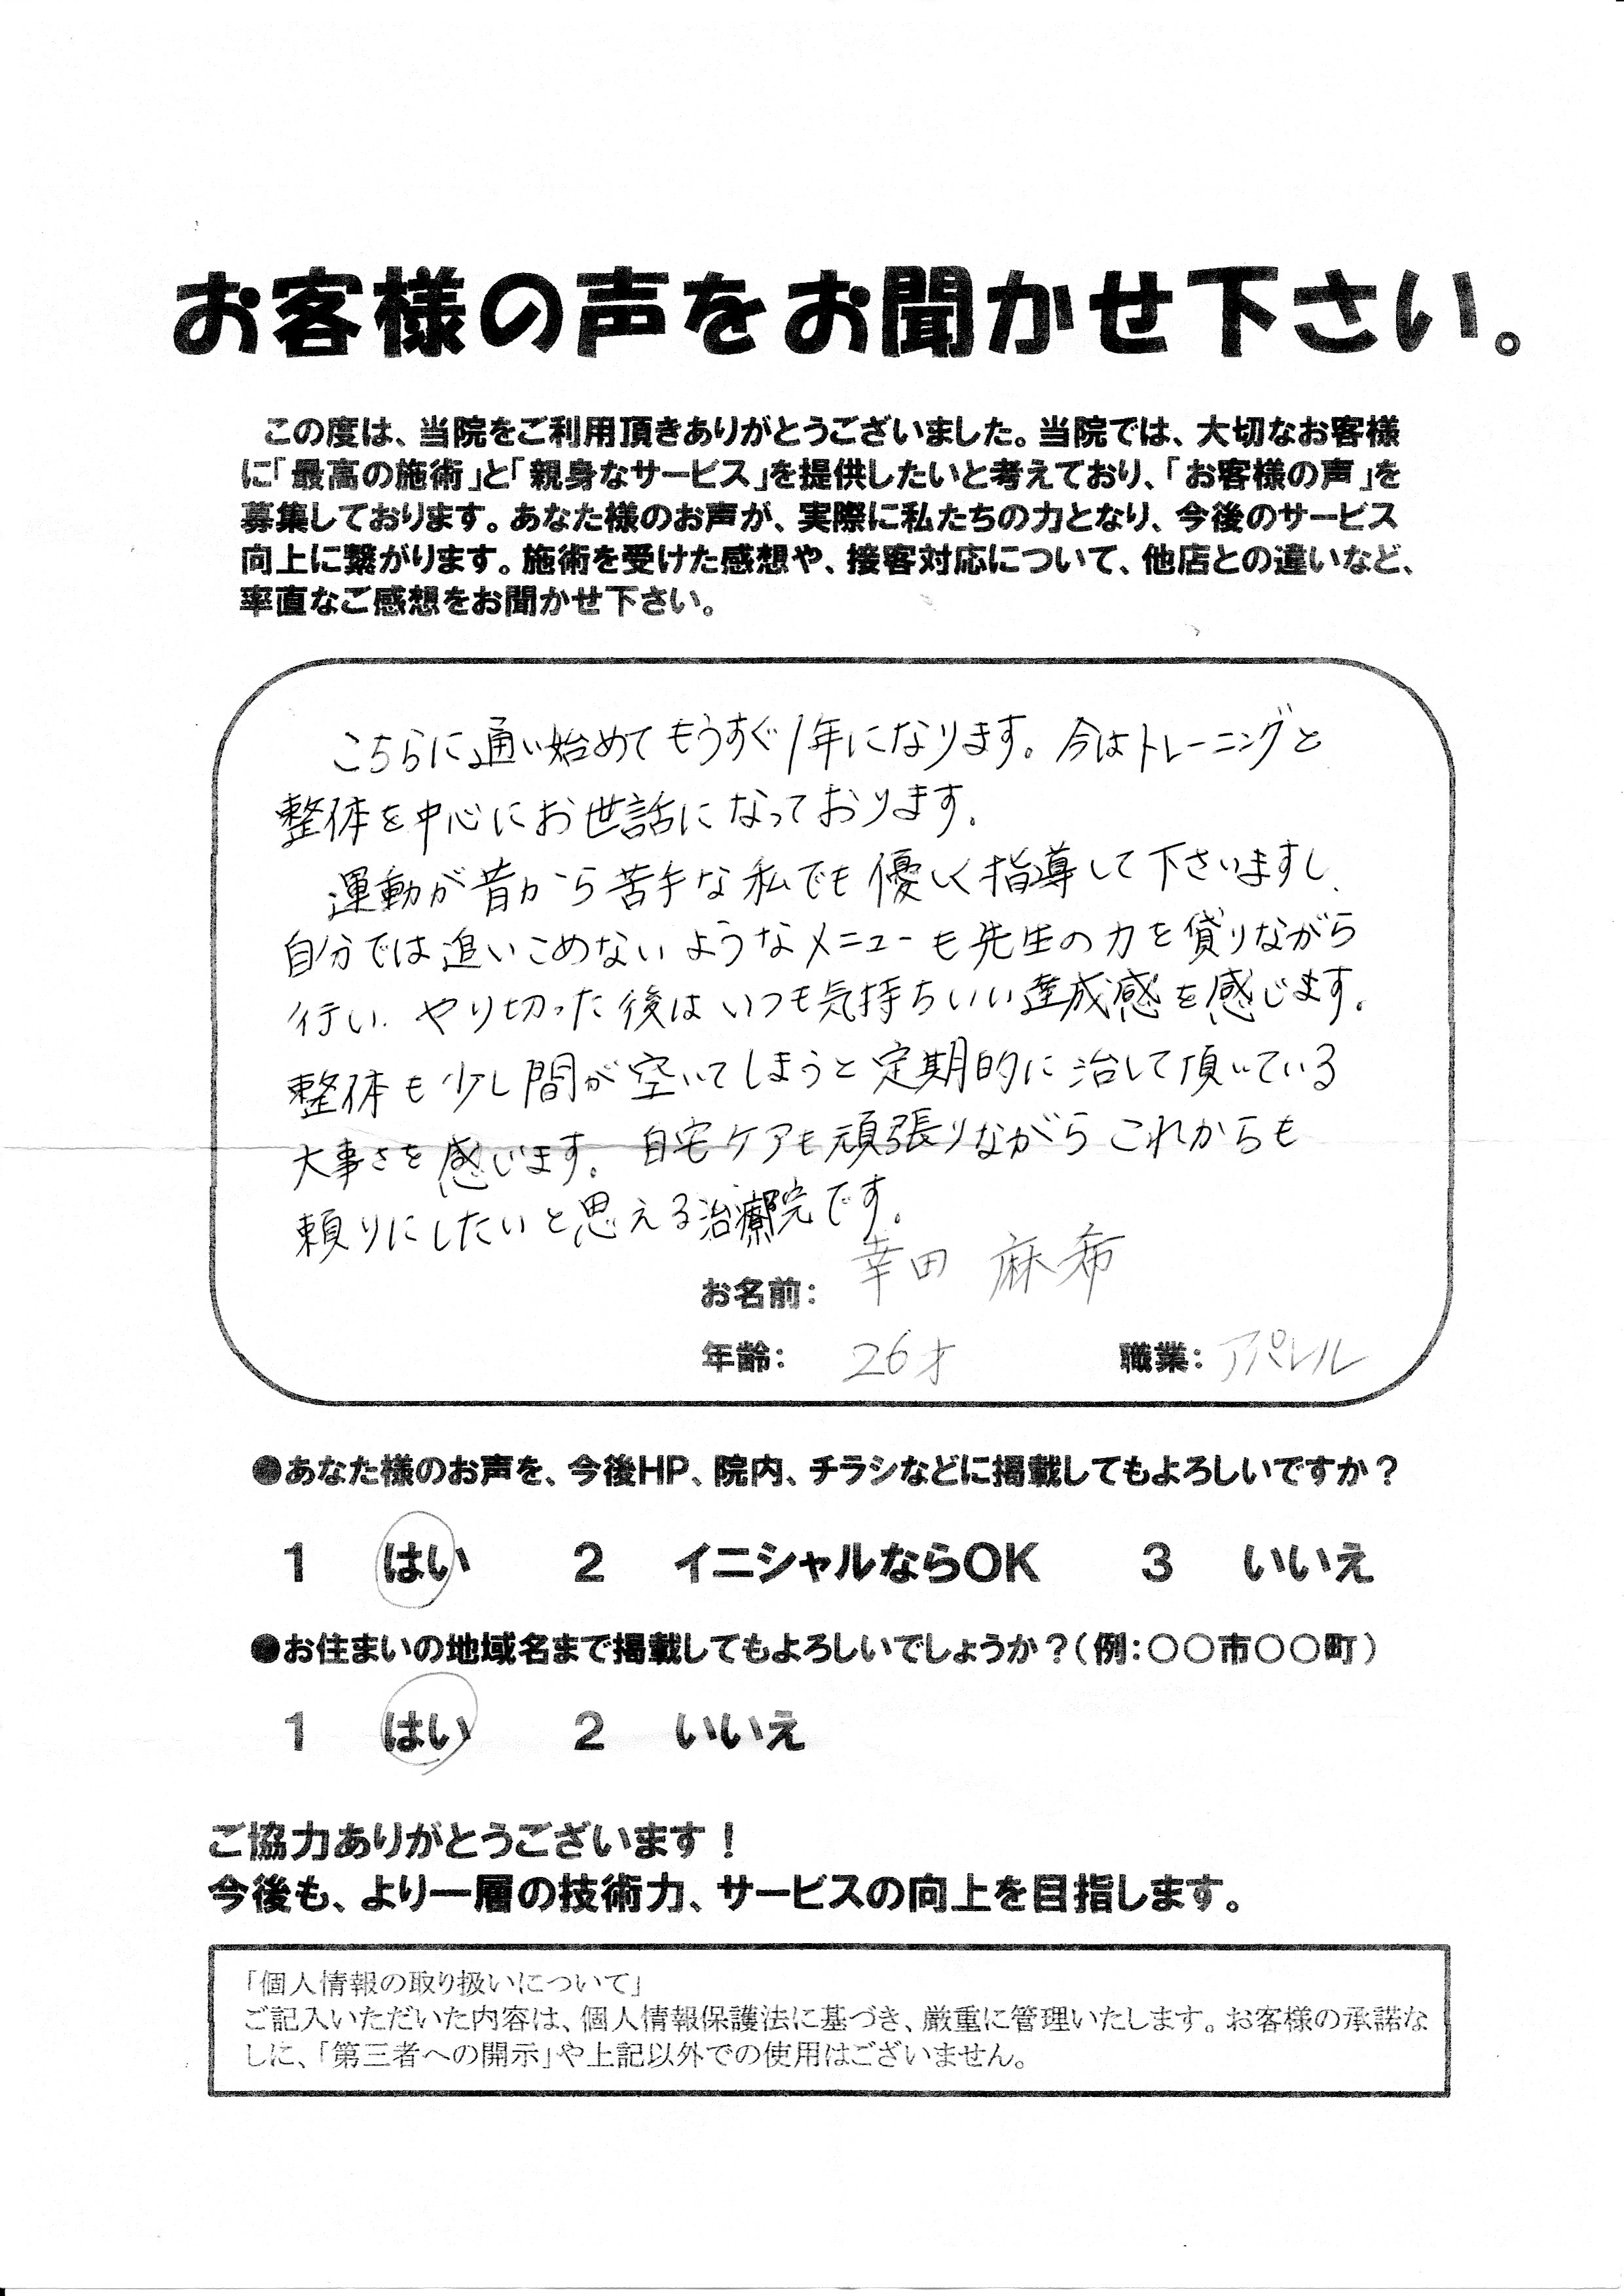 お客様の声をお聞かせ下さい。
この度は、当院をご利用頂きありがとうございました。当院では、大切なお客様
に「最高の施術」と「親身なサービス」を提供したいと考えており、「お客様の声」を
募集しております。あなた様のお声が、実際に私たちの力となり、今後のサービス
向上に繋がります。施術を受けた感想や、接客対応について、他店との違いなど、
率直なご感想をお聞かせ下さい。
こちらに通い始めてもうすぐ1年になります。今はトレーニングと
整体を中心にお世話になっております。
運動が昔から苦手な私でも優しく指導して下さいますし、
自分では追いこめないようなメニューも先生の力を貸りながら
行い、やり切った後はいつも気持ちいい達成感を感じます。
整体も少し間が空いてしまうと定期的に治して頂いている
大事さを感じます。自宅ケアも頑張りながらこれからも
頼りにしたいと思える治療院です。
お名前: 幸田 麻希
年齢: 26才 職業: アパレル
●あなた様のお声を、今後HP、院内、チラシなどに掲載してもよろしいですか？
1 はい 2 イニシャルならOK 3 いいえ
●お住まいの地域名まで掲載してもよろしいでしょうか？(例:〇〇市〇〇町)
1 はい 2 いいえ
ご協力ありがとうございます！
今後も、より一層の技術力、サービスの向上を目指します。
「個人情報の取り扱いについて」
ご記入いただいた内容は、個人情報保護法に基づき、厳重に管理いたします。お客様の承諾な
しに、「第三者への開示」や上記以外での使用はございません。